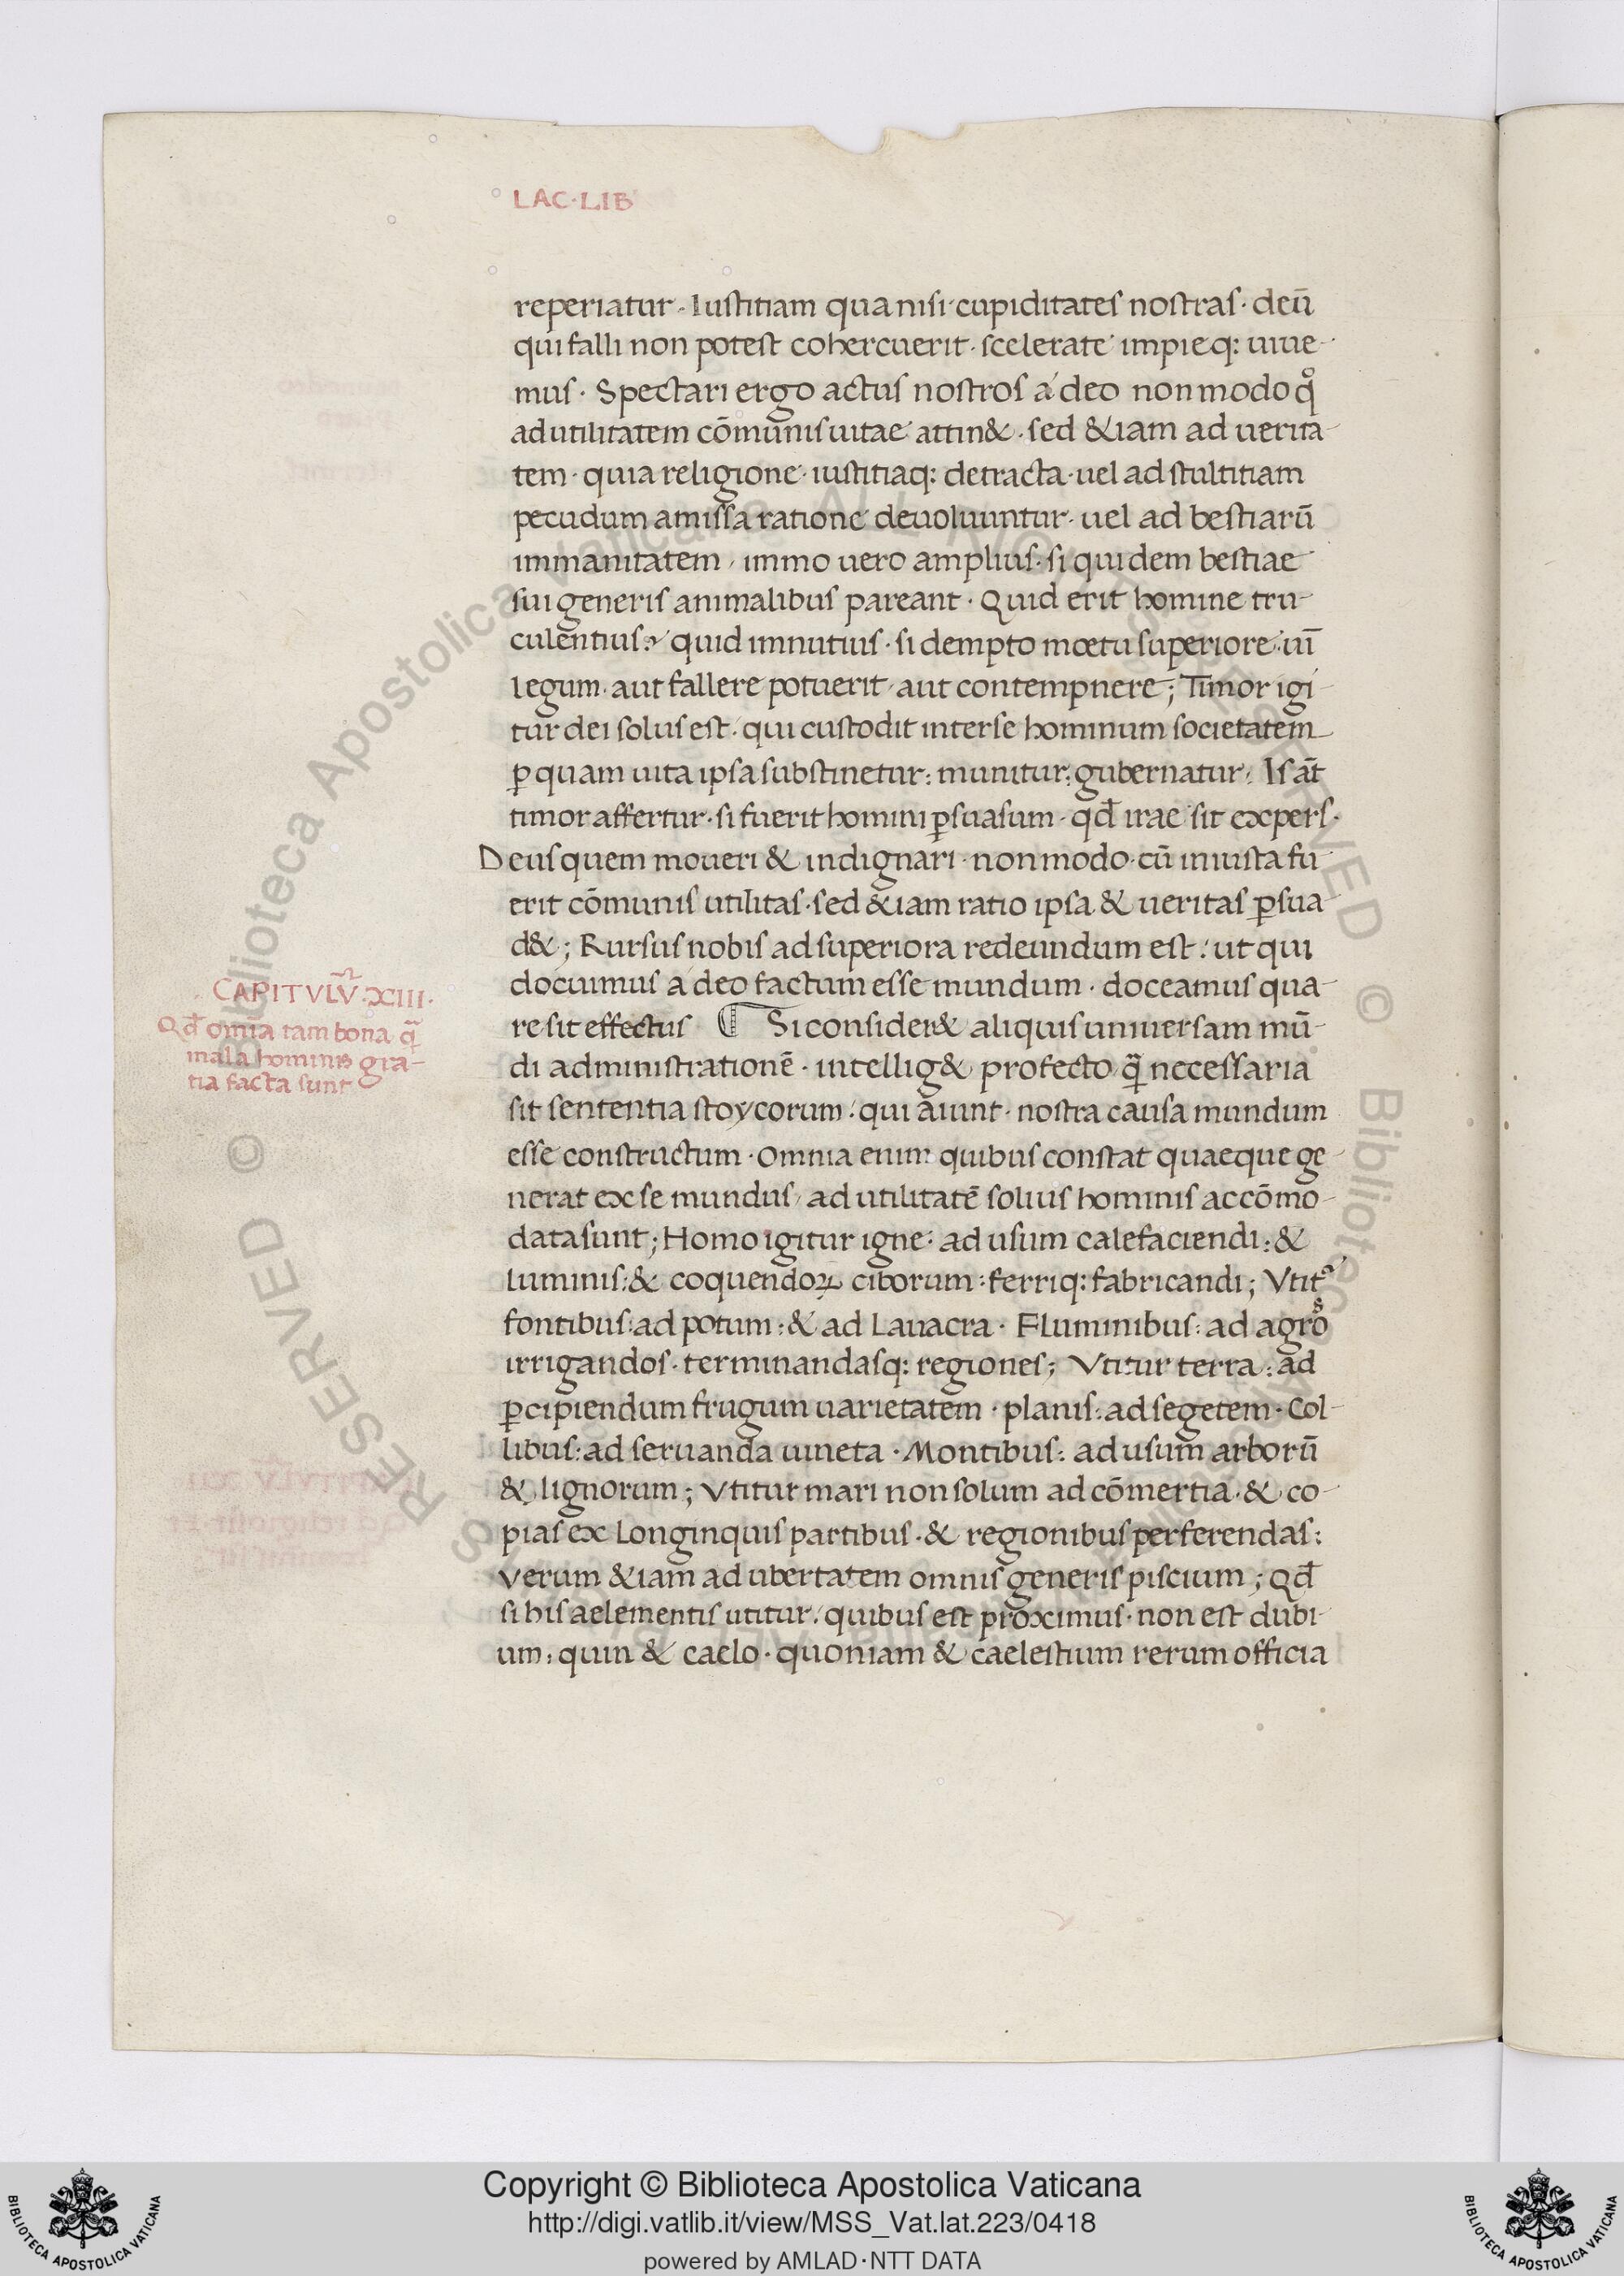 LAC·LIB
reperiatur · Iustitiam qua nisi cupiditates nostras · deū
qui falli non potest cohercuerit · scelerate impieq: uiue-
mus · Spectari ergo actus nostros a deo non modo qͦ
ad utilitatem cōmunis uitae attin& · sed &iam ad uerita-
tem · quia religione · iustitiaq: detracta · uel ad stultitiam
pecudum amissa ratione deuoluuntur · uel ad bestiarū
immanitatem, immo uero amplius · si quidem bestiae
sui generis animalibus pareant · Quid erit homine tru-
culentius? quid inmitius · si dempto mœtu superiore · uī
legum · aut fallere potuerit · aut contempnere; Timor igi-
tur dei solus est · qui custodit inter se hominum societatem
ꝑ quam uita ipsa substinetur: munitur: gubernatur · Is āt
timor affertur · si fuerit homini ꝑsuasum · qđ irae sit expers ·
Deus quem moueri & indignari · non modo · cū iniusta fu-
erit cōmunis utilitas · sed &iam ratio ipsa & ueritas ꝑsua-
d&; Rursus nobis ad superiora redeundum est: ut qui
docuimus a deo factum esse mundum · doceamus qua-
re sit effectus ¶ Si consider& aliquis uniuersam mū-
di administrationē · intellig& profecto q̄ necessaria
sit sententia stoycorum: qui aiunt · nostra causa mundum
esse constructum · Omnia enim quibus constat quaeque ge-
nerat ex se mundus, ad utilitatē solius hominis accōmo-
data sunt; Homo igitur igne: ad usum calefaciendi: &
luminis: & coquendoꝝ ciborum: ferriq: fabricandi; Vtit᷑
fontibus: ad potum: & ad Lauacra · Fluminibus: ad agroˢ
irrigandos · terminandasq: regiones; Vtitur terra: ad
ꝑcipiendum frugum uarietatem · planis: ad segetem · Col-
libus: ad seruanda uineta · Montibus: ad usum arborū
& lignorum; Vtitur mari non solum ad cōmertia · & co-
pias ex Longinquis partibus · & regionibus perferendas:
Verum &iam ad ubertatem omnis generis piscium; Qđ
si his aelementis utitur: quibus est proximus · non est dubi-
um: quin & caelo · quoniam & caelestium rerum officia
CAPITVLV̄ · XIII ·
Qđ omnia tam bona q̄
mala hominis gra-
tia facta sunt
© Biblioteca Apostolica Vaticana ALL RIGHTS RESERVED © Biblioteca Apostolica Vaticana ALL RIGHTS RESERVED
Copyright © Biblioteca Apostolica Vaticana
http://digi.vatlib.it/view/MSS_Vat.lat.223/0418
powered by AMLAD·NTT DATA
BIBLIOTECA APOSTOLICA VATICANA
BIBLIOTECA APOSTOLICA VATICANA